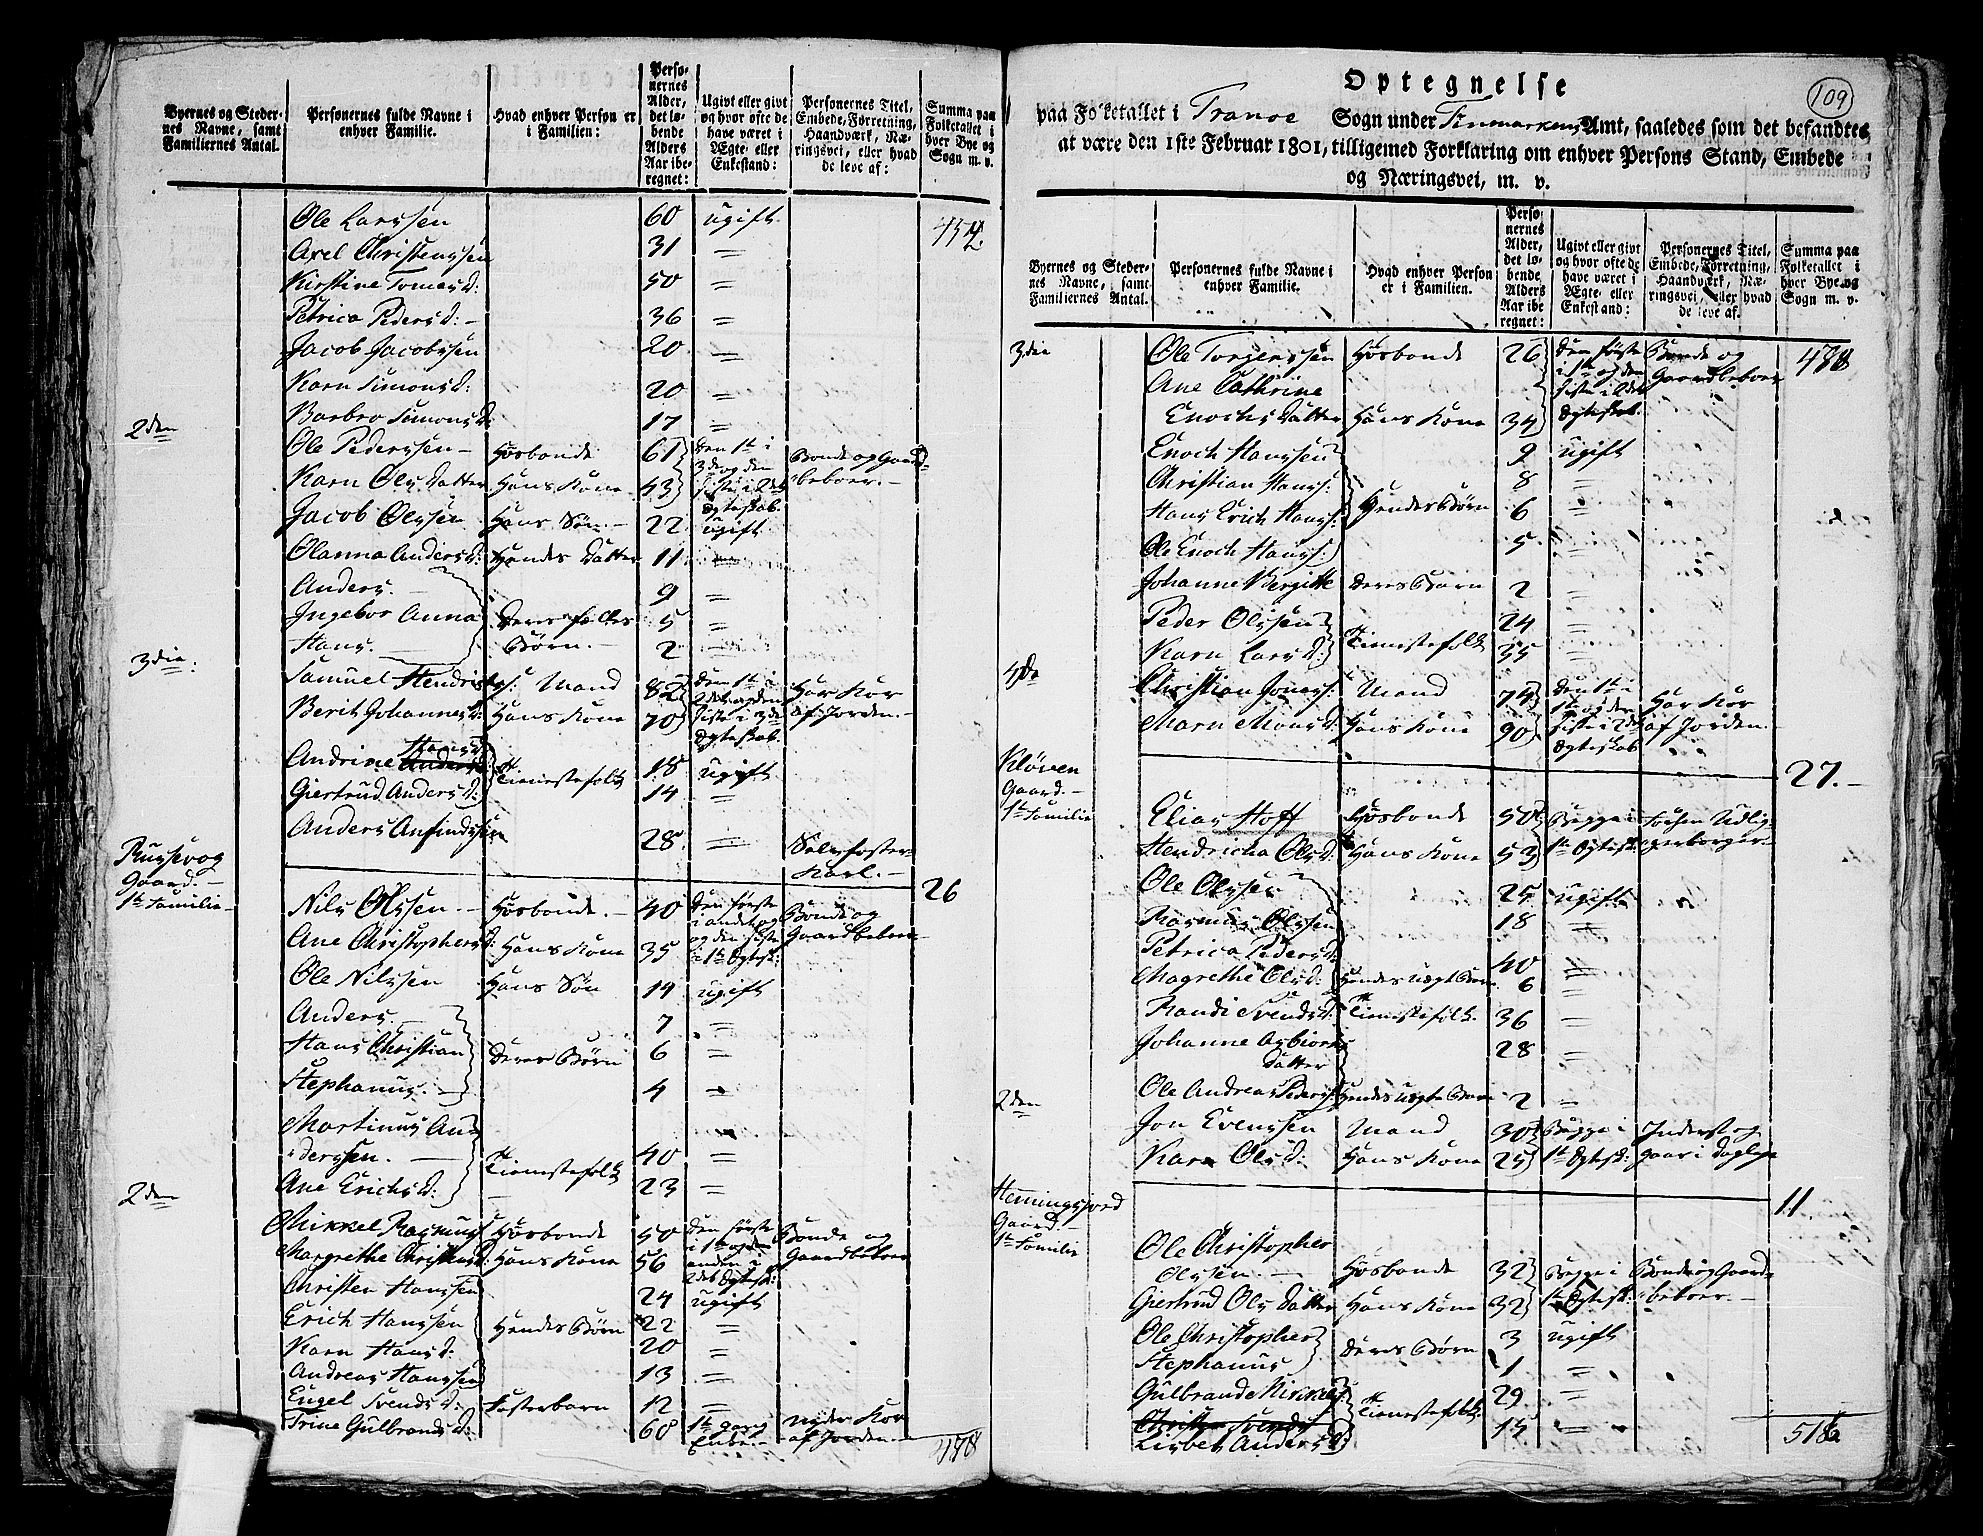 Byernes og Steder-
nes Navne, samt
Familiernes Antal.
Personernes fulde Navne i
enhver Familie.
Hvad enhver Person er
i Familien:
Perso-
nernes
Alder,
det lø-
bende
Alders
Aar ibe-
regnet:
Ugivt eller givt
og hvor ofte de
have været i
Ægte- eller
Enkestand:
Personernes Titel,
Embede, Forretning,
Haandværk, Næ-
ringsvei, eller hvad
de leve af:
Summa paa
Folketallet i
hver Bye og
Sogn m. v.
Ole Larssen 60 ugift 452.
Axel Christenssen 31 =
Kirstine Tomasd: 50 =
Petrica Pedersd: - 36 =
Jacob Jacobssen 20 =
Karn Simonsd: 20 =
Barbro Simonsd: 17 =
2den Ole Pederssen - Hosbonde 61 Den 1te i Bonde og Gaard-
3de og den
Karn Ols Datter Hans Kone 43 siste i 2det beboer. -
Ægteskab.
Jacob Olssen Hans Søn. - 22 ugift
Olanna Andersd: Hendes Datter 11 =
Anders. - 9 =
Ingebor Anna Deres fælles 5 =
Hans. - Børn. - 2 =
3die: Samuel Hendriks: Mand 82 Den 1te i Har Kor
2det og den
Berit Johannesd: Hans Kone 70 siste i 3die af Jorden. -
Ægteskab.
Hans
Andrine Andersd: Tienestefolk 18 ugift
Giertrud Andersd: 14 =
Anders Anfindssen 28 = Selvfoster-
Karl. -
Russevog
Gaard. - 26
1te Familie - Nils Olssen. - Hosbonde. - 40 Den første Bonde og
i andet og
Ane Christophersd: Hans Kone 35 og den siste Gaardbeboer -
i 1te Ægtesk:
Ole Nilssen Hans Søn 19 ugift
Anders. - 7 =
Hans Christian Deres Børn 6 =
Stephanus. - 4 =
Martinus An-
derssen. - Tienestefolk 40 =
Ane Erichsd: 23 =
2den Mikkel Rasmus: Hosbonde 50 Den første Bonde og
i 1te og den
Margrethe Christensd: Hans Kone 56 anden i Gaardbeboer
2det Ægtesk:
Christen Hanssen 24 ugift
Erich Hanssen Hendes Børn 22 =
Karn Hansd: 20 =
Andreas Hanssen 13 =
Engel Svendsd: Fosterbarn 12 =
Trine Gulbrandsd: 68 1te gang nyder Kor
Enke. - af Jorden. - 478
109
Optegnelse
paa Folketallet i Tranøe Sogn under Finmarkens Amt, saaledes som det befandtes
at være den 1ste Februar 1801, tilligemed Forklaring om enhver Persons Stand, Embede
og Næringsvei, m. v.
Byernes og Steder-
nes Navne, samt
Familiernes Antal.
Personernes fulde Navne i
enhver Familie.
Hvad enhver Person
er i Familien.
Perso
nernes
Alder,
det lø-
bende
Alders
Aar ibe
regnet:
Ugivt eller givt
og hvor ofte de
have været i
Ægte- eller
Enkestand:
Personernes Titel,
Embede, Forretning,
Haandværk, Næ-
ringsvei, eller hvad
de leve af.
Summa paa
Folketallet i
hver Bye og
Sogn m. v.
3die Ole Torgerssen Hosbonde 26 Den første Bonde og 478
Ane Cathrine i 1te og den Gaardbeboer
siste i 2det
Enochs Datter Hans Kone 34 Ægteskab.
Enoch Hanssen 9 ugift
Christian Hanss: 8 =
Hans Erich Hanss: Hendes Børn 6 =
Ole Enoch Hanss: 5 =
Johanne Bergitte Deres Barn 2 =
Peder Olssen 24 =
Tienestefolk
Karn Larsd: 35 =
4de Christian Jonas: Mand 74 Den 1te i Har Kor
1te og den
Marn Monsd: Hans Kone 90 siste i 2det af Jorden.
Ægteskab
Kløven
Gaard. - 27. -
1te Familie Elias Hoff Hosbonde 50 Begge i Forhen Udlig-
Hendricha Olsd: Hans Kone 53 1te Ægtesk: gerborger -
Ole Olssen 25 ugift
Rasmus Olssen 18 =
Petrica Pedersd: 40 =
Magrethe Olsd: Hendes uægte Barn 6 =
Randi Svendsd: Tienestefolk. 36 =
Johanne Asbiørns 28 =
Datter
Ole Andreas Peders: Hendes uægte Barn 2 =
2den Jon Evenssen Mand 30 Begge i Inderst og
Karn Olsd: Hans Kone 25 1te Ægtesk: gaar i Dagleye
Hemingsfjord
Gaard. - 11
1te Familie Ole Christopher
Olssen. - Hosbonde 32 Begge i Bonde og Gaard-
Giertrud Ols Datter Hans Kone 32 1te Ægtesk: beboer. -
Ole Christopher 3 ugift
Deres Børn
Stephanus 1 =
Gulbrande Mikkels: 29 =
Tienestefolk
Lisbet Andersd: 14 = 516